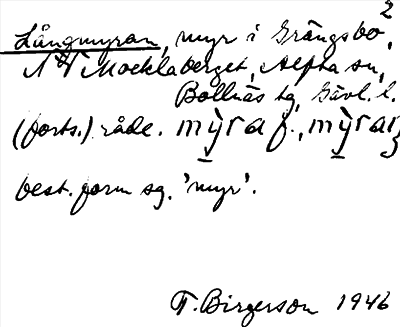 Långmyran, myr i Grängsbo 2,
N Mocklaberget, Alfta sn,
Bollnäs tg, Gävl. l.
(forts.) råde. my̆ra f., my̆ran
best. form sg. 'myr'.
T. Birgerson 1946